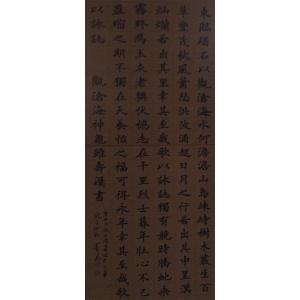 東臨碣石以觀滄海水何澹澹山島竦峙樹木叢生百
草豐茂秋風蕭瑟洪波涌起日月之行若出其中星漢
燦爛若出其里幸甚至哉歌以詠誌有時
霧終為土灰老驥伏櫪志在千里烈士暮年壯心不已
盈縮之期不獨在天養怡之福可得永年幸甚至哉歌
以詠誌 觀滄海神龜雖壽 書